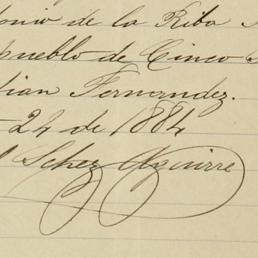 tonio de la Riba
pueblo de Cinco
tian Fernandez.
24 de 1884
Schez Aguirre